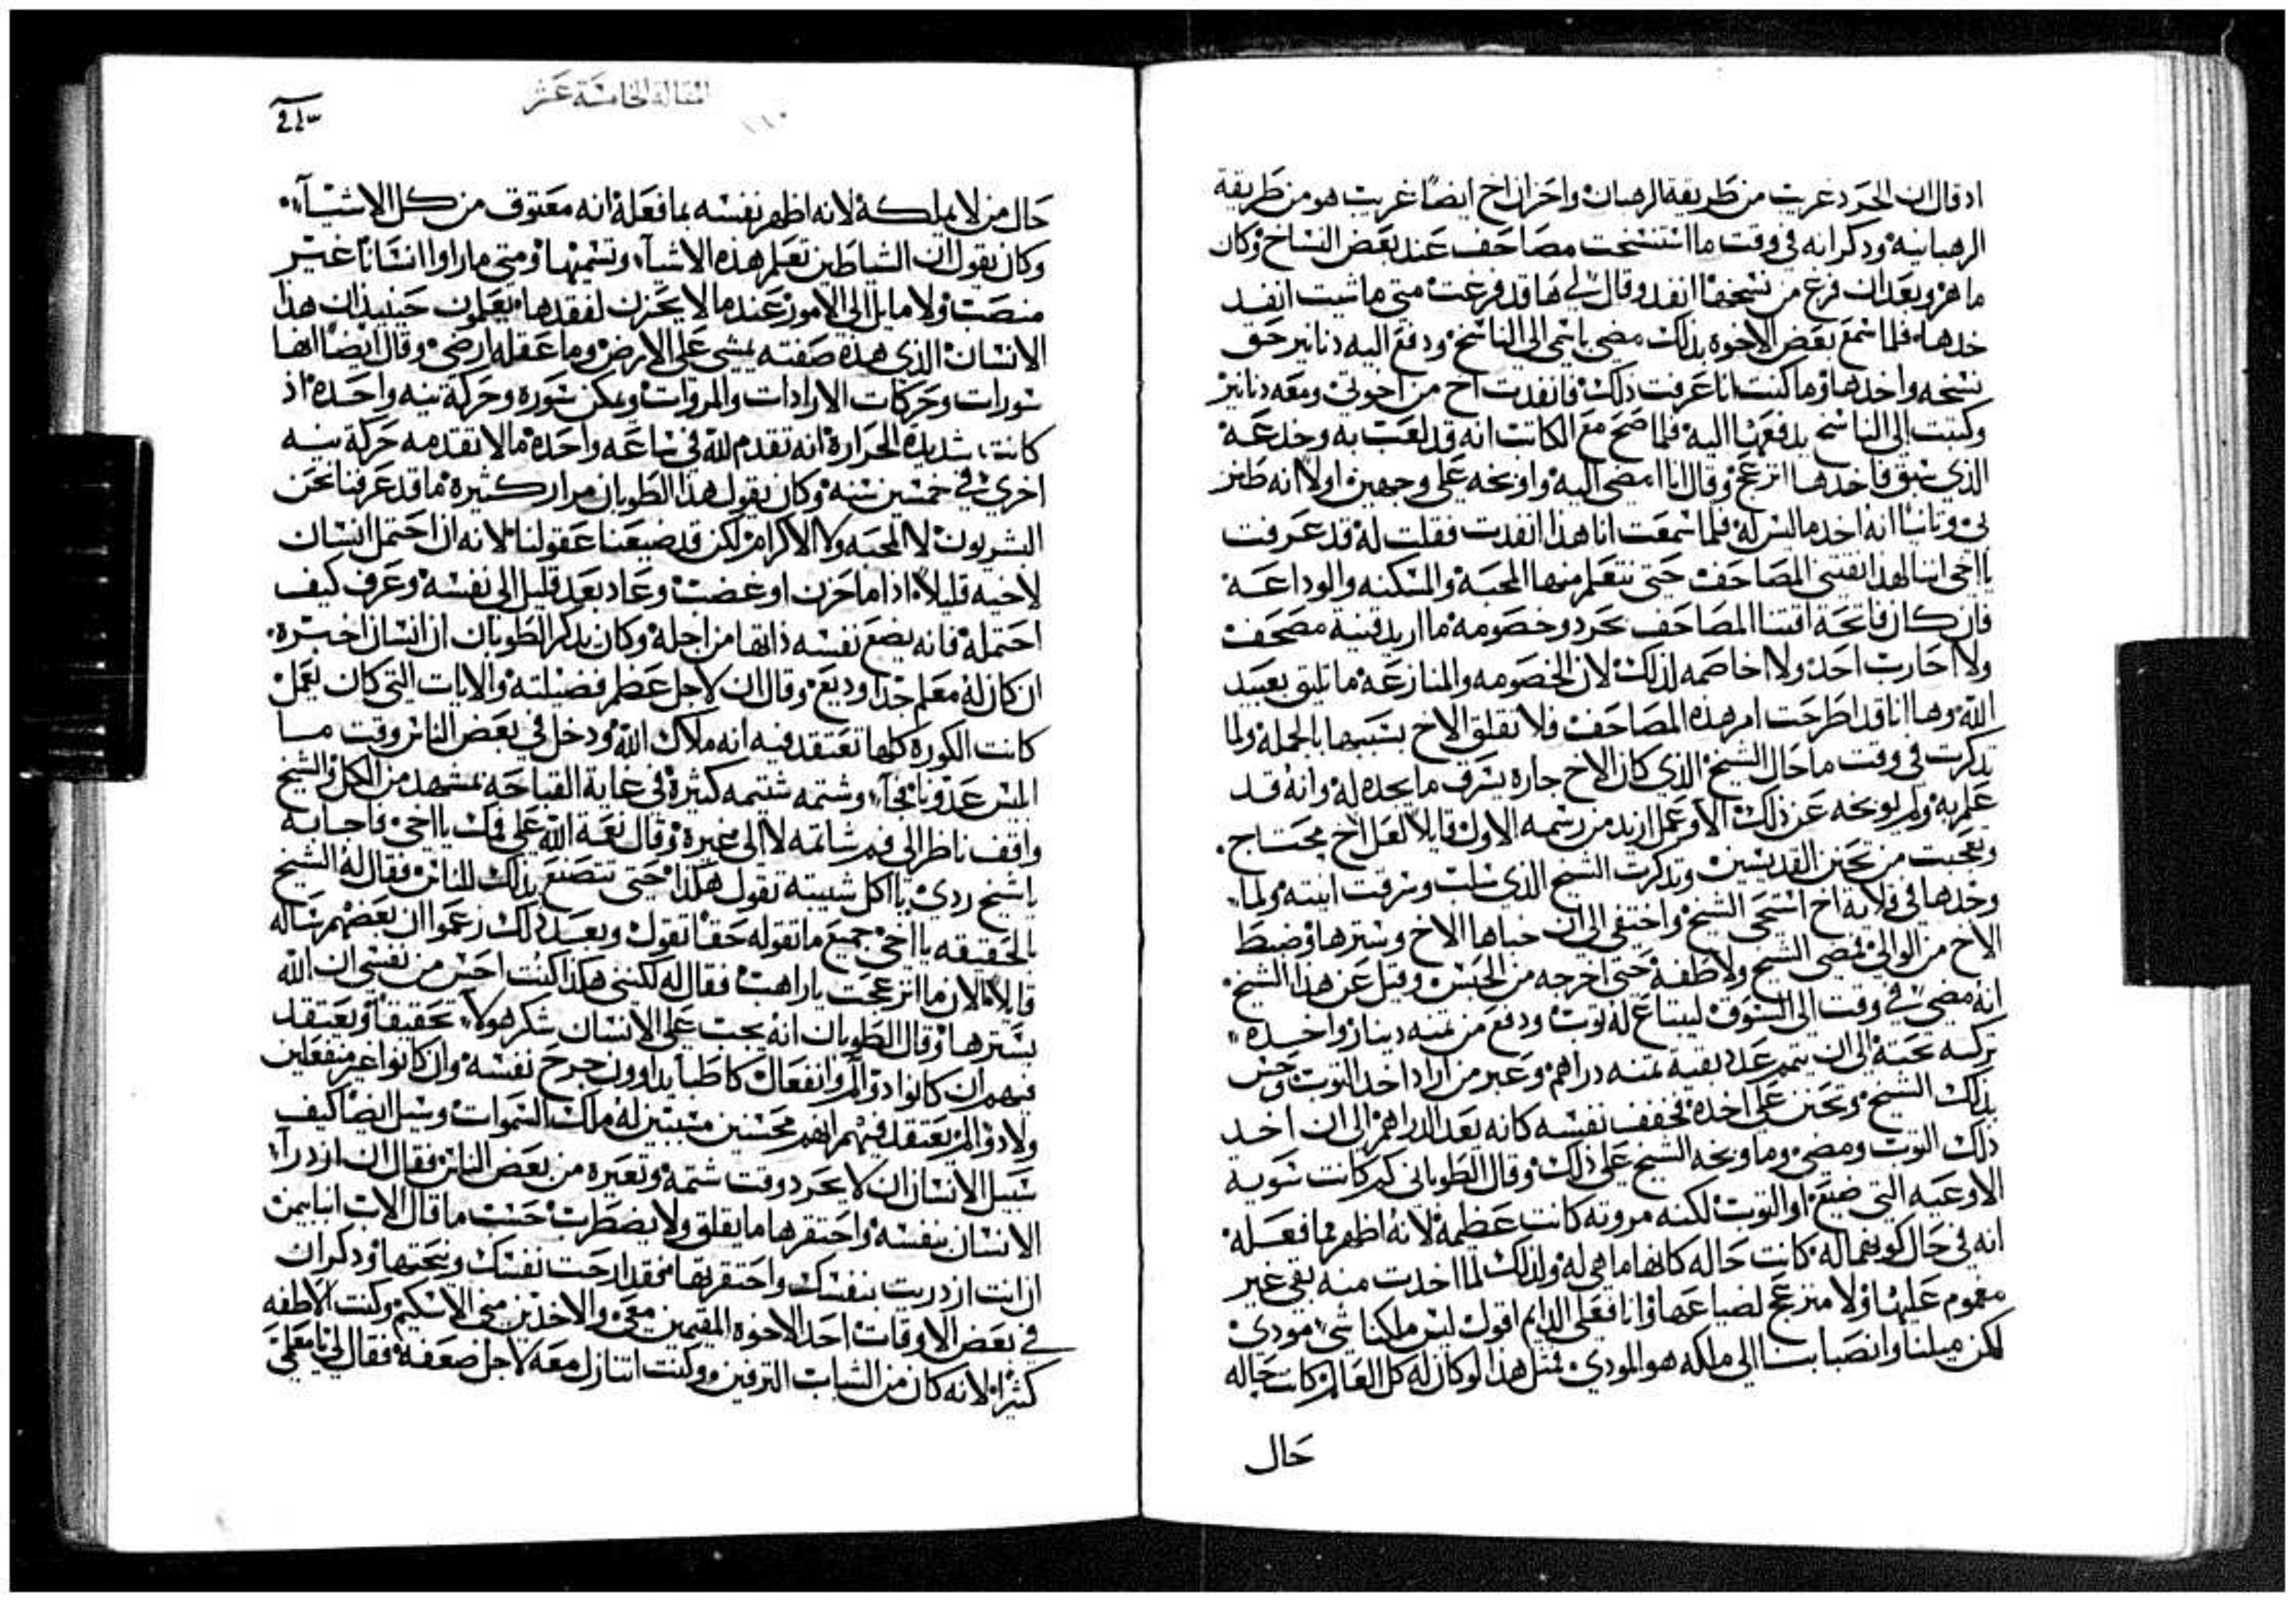 اد قال ان الحرد غريب من طريقة الرهبان واحزان اخ ايضاً غريب هو من طريقة
الرهبانيه ودكر انه في وقت ما استنسخت مصاحف عند بعض النساخ وكان
ماهر وبعد ان فرغ من نسخها انفد وقال لي ها قد فرغت متى ما شيت انفد
خدها فلما سمع بعض الاخوه بذلك مضى باسمي الى الناسخ ودفع اليه دنانير حق
نسخه واخدها وما كنت انا عرفت ذلك فانفدت اخ من اخوتي ومعه دنانير
وكتبت الى الناسخ بدفعها اليه فلما صح مع الكاتب انه قد لعب به وخدعه
الذي سبق فاخدها انزعج وقال انا امضي اليه واوبخه على وجهين اولا انه طنز
بي وتانيا انه اخد ما ليس له فلما سمعت انا هذا انفدت فقلت له قد عرفت
يا اخي اننا لهذا نقتني المصاحف حتى نتعلم منها المحبة والمسكنه والوداعة
فان كان فاتحة اقتنا المصاحف بحرد وخصومه ما اريد قنية مصحف
ولا احارب احد ولا اخاصمه لذلك لان الخصومه والمنازعة ما تليق بعبيد
الله وها انا قد اطرحت امر هذه المصاحف فلا تقلق الاخ بسببها بالجملة ولما
تدكرت في وقت ما حال الشيخ الذي كان الاخ جاره يسرق ما يجده له وانه قد
علم به ولم يوبخه عن ذلك الا وعمل ازيد من رسمه الاول قايلا لعل اخ محتاج
وتعجبت من تحنن القديسين وتدكرت الشيخ الذي سلب وسرقت انيته ولما
وجدها في قلاية اخ استحى الشيخ واختفى الى ان خباها الاخ وسترها وضبط
الاخ من الوالي فمضى الشيخ ولاطفه حتى اخرجه من الحبس وقيل عن هذا الشيخ
انه مضى في وقت الى السوق ليبتاع له توب ودفع من تمنه دينار واحده
تركه تحته الى ان يتمم عدد بقية تمنه دراهم وعبر من اراد اخد التوب وحس
بذلك الشيخ وتحنن على اخده فخفف نفسه كانه يعد الدراهم الى ان اخد
ذلك التوب ومضى وما وبخه الشيخ على ذلك وقال الطوباني كم كانت تسويه
الاوعيه التي ضيع او التوب لكنه مروته كانت عظيمة لانه اظهر بما فعله
انه في حال كونهما له كانت حاله كانها ما هي له ولذلك لما اخدت منه بقي غير
مغموم عليها ولا منزعج لضياعها وانا فعلى الدايم اقول ليس ملكنا شي مودي
لكن ميلنا وانصبابنا الى ملكه هو المودي فمتل هذا لو كان له كل العالم كانت حاله
حال
المقالة الخامسة عشر
١١٠
حال من لا يملكه لانه اظهر نفسه بما فعله انه معتوق من كل الاشيآء
وكان يقول ان الشياطين تعلم هذه الاشيآء وتشمها ومتى ما راوا انسانا غير
منصب ولا مايل الى الامور عندما لا يحزن لفقدها يعلمون حينيذ ان هذا
الانسان الذي هذه صفته يمشي على الارض وما عقله ارضي وقال ايضاً انها
سورات وحركات الارادات والمروات ويمكن سوره وحركة نيه واحده اذ
كانت شديدة الحراره انه تقدم لله في ساعه واحده ما لا تقدمه حركة نيه
اخرى في خمسين سنه وكان يقول هذا الطوبان مرار كثيره ما قد عرفنا نحن
البشريون لا المحبه ولا الاكرام لكن قد ضيعنا عقولنا لانه ان احتمل انسان
لاخيه قليلا اذا ما حزن او غضب وعاد بعد قليل الى نفسه وعرف كيف
احتمله فانه يضع نفسه ذاتها من اجله وكان يدكر الطوبان ان انسان اخبره
ان كان له معلم جدا وديع وقال ان لاجل عظم فضيلته والايات التي كان يعمل
كانت الكوره كلها تعتقد فيه انه ملاك الله ودخل في بعض الناس وقت ما
الميس عدونا فجآء وشتمه شتيمه كثيرة في غاية القباحه بمشهد من الكل والشيخ
واقف ناظر الى فم شاتمه لا الى غيره وقال نعمة الله على فمك يا اخي فاجابه
يا شيخ ردي يا اكل شيبته تقول هكذا حتى تتصنع بذلك للناس فقال له الشيخ
بالحقيقه يا اخي جميع ما تقوله حقا تقول وبعد ذلك زعموا ان بعضهم ساله
قايلا الان ما انزعجت يا راهب فقال له لكنني هكذا كنت احس من نفسي ان الله
يسترها وقال الطوبان انه يجب على الانسان شكر هولآء تحقيقا ويعتقد
فيهم ان كانوا ذو الم وانفعال كاطبآ يداوون جرح نفسه وان كانوا غير منفعلين
ولا ذو الم يعتقد فيهم انهم محسنين مسببين له ملك السموات وسيل ايضا كيف
سبيل الانسان ان لا يحرد وقت شتمه وتعيره من بعض الناس فقال ان ازدرآء
الانسان بنفسه واحتقرها ما يقلق ولا يضطرب حسب ما قال الاب انبا بيمن
ان انت ازدريت بنفسك واحتقرتها فقد ارحت نفسك ونيحتها ودكر ان
في بعض الاوقات احد الاخوه المقيمين معي والاخدين مني الاسكيم وكنت الاطفه
كثيرا لانه كان من الشباب الترفين وكنت اتنازل معه لاجل ضعفه فقال لي يا معلمي